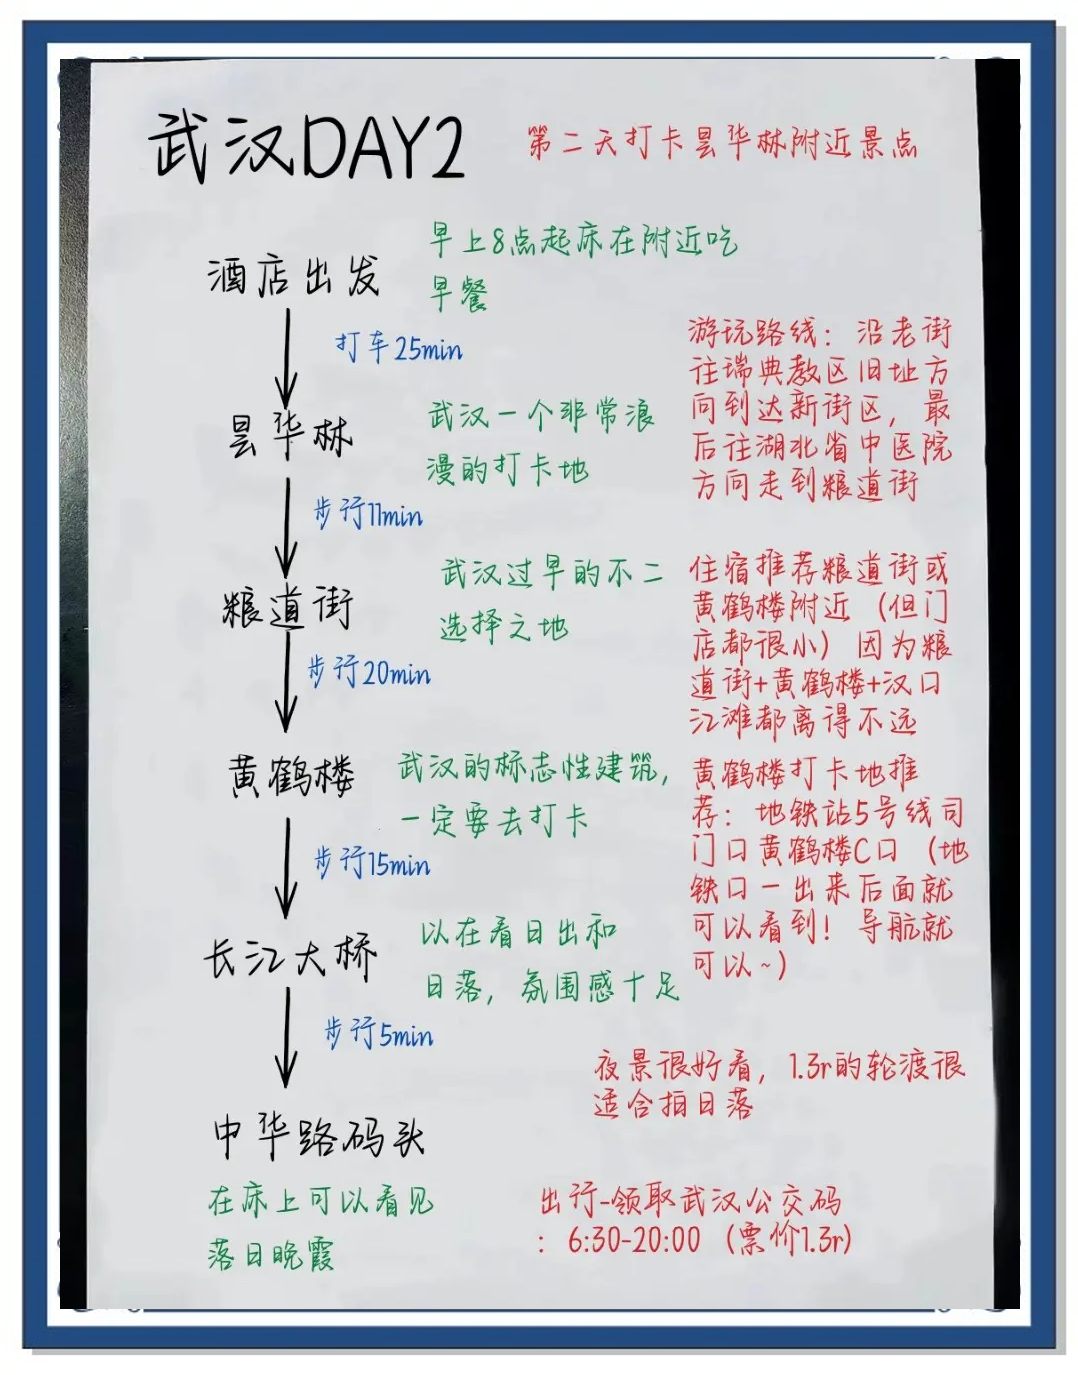 武汉DAY2
第二天打卡昙华林附近景点
酒店出发
早上8点起床在附近吃
早餐
打车25min
昙华林
武汉一个非常浪
漫的打卡地
游玩路线：沿老街
往瑞典教区旧址方
向到达新街区，最
后往湖北省中医院
方向走到粮道街
步行11min
粮道街
武汉过早的不二
选择之地
住宿推荐粮道街或
黄鹤楼附近（但门
店都很小）因为粮
道街+黄鹤楼+汉口
江滩都离得不远
步行20min
黄鹤楼
武汉的标志性建筑，
一定要去打卡
黄鹤楼打卡地推
荐：地铁站5号线司
门口黄鹤楼C口（地
铁口一出来后面就
可以看到！导航就
可以~）
步行15min
长江大桥
以在看日出和
日落，氛围感十足
步行5min
夜景很好看，1.3r的轮渡很
适合拍日落
中华路码头
在床上可以看见
落日晚霞
出行-领取武汉公交码
：6:30-20:00（票价1.3r）